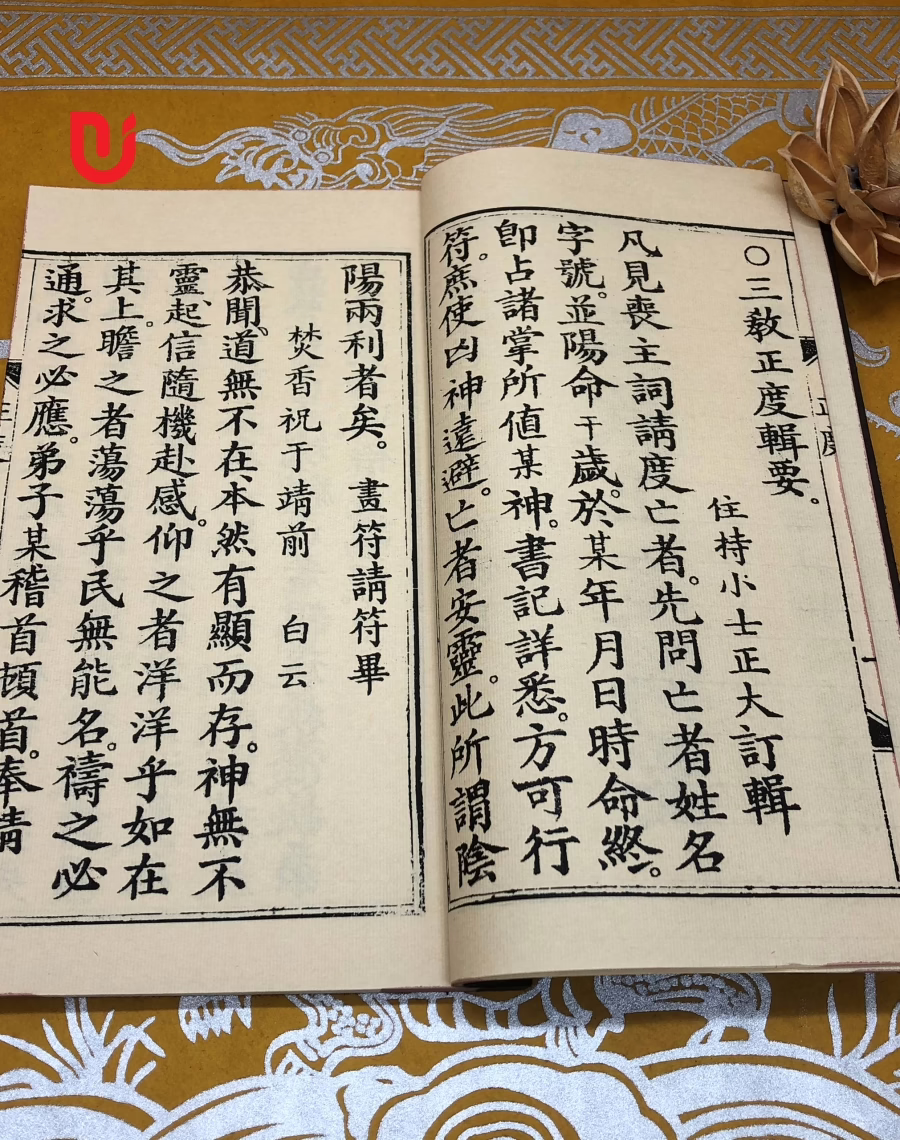 ○三教正度輯要。
住持小士正大訂輯
凡見喪主詞請度亡者。先問亡者姓名
字號。並陽命干歲。於某年月日時命終。
即占諸掌所値某神。書記詳悉。方可行
符。庶使凶神遠避。亡者安靈。此所謂陰
陽兩利者矣。畫符請符畢
焚香祝于靖前 白云
恭聞、道無不在、本然有顯而存。神無不
靈、起信隨機赴感。仰之者洋洋乎如在
其上。瞻之者蕩蕩乎民無能名。禱之必
通。求之必應。弟子某稽首頓首。奉請
正度